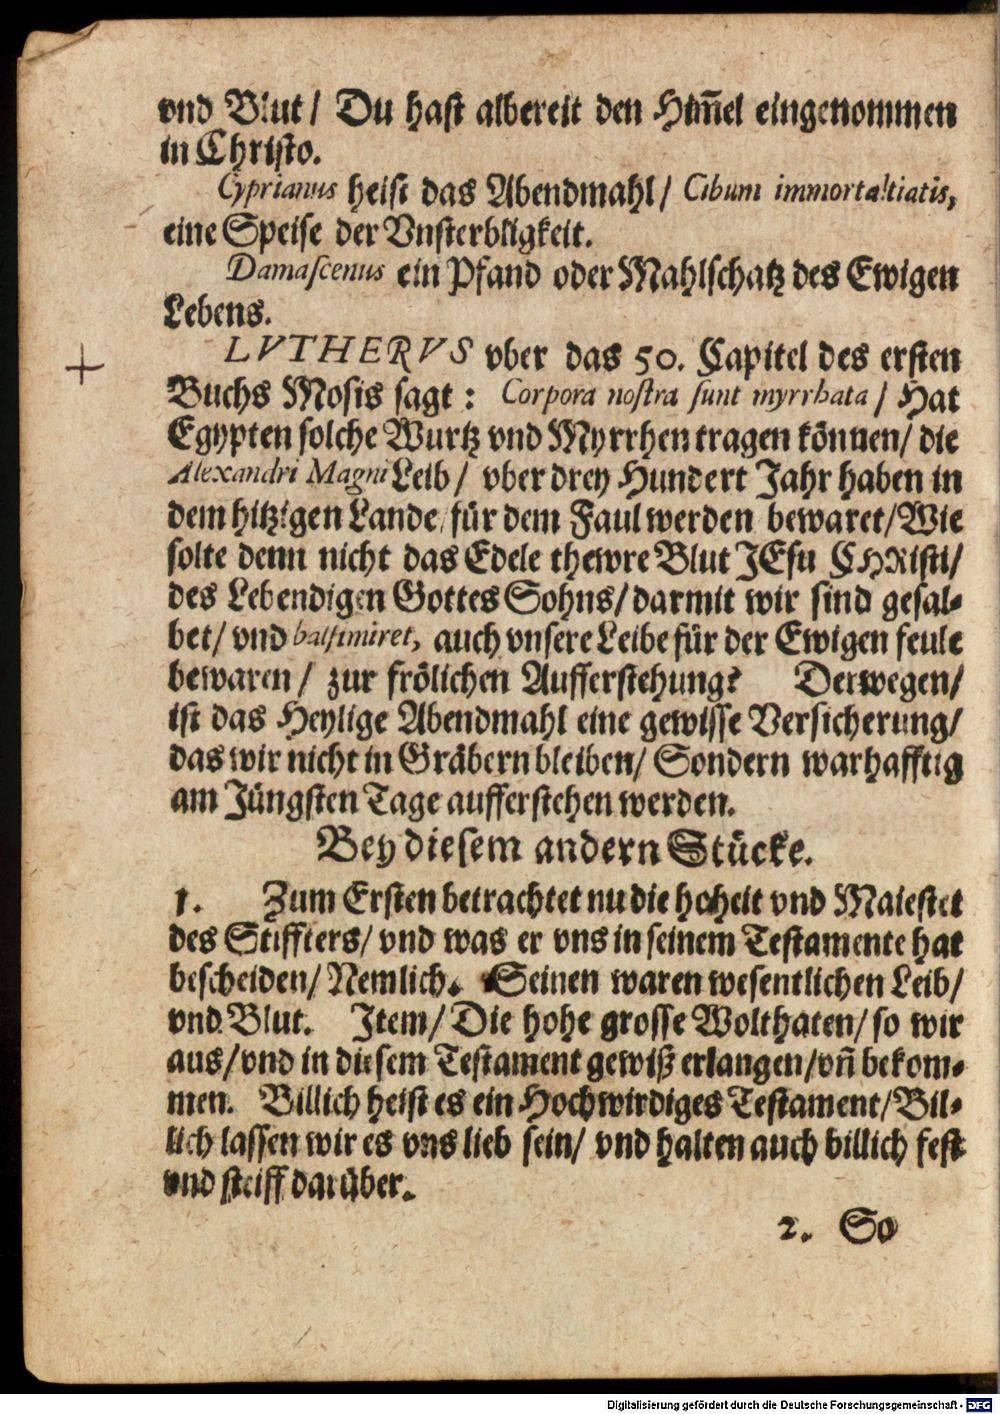 vnd Blut / Du hast albereit den Him̃el eingenommen
in Christo.
Cyprianus heist das Abendmahl / Cibum immortaltiatis,
eine Speise der Vnsterbligkeit.
Damascenus ein Pfand oder Mahlschatz des Ewigen
Lebens.
LVTHERVS vber das 50. Capitel des ersten
Buchs Mosis sagt : Corpora nostra sunt myrrhata / Hat
Egypten solche Wurtz vnd Myrrhen tragen können / die
Alexandri Magni Leib / vber drey Hundert Jahr haben in
dem hitzigen Lande / für dem Faul werden bewaret / Wie
solte denn nicht das Edele thewre Blut JEsu CHRisti /
des Lebendigen Gottes Sohns / darmit wir sind gesal-
bet / vnd balsimiret, auch vnsere Leibe für der Ewigen feule
bewaren / zur frölichen Aufferstehung? Derwegen /
ist das Heylige Abendmahl eine gewisse Versicherung /
das wir nicht in Gräbern bleiben / Sondern warhafftig
am Jüngsten Tage aufferstehen werden.
Bey diesem andern Stücke.
1. Zum Ersten betrachtet nu die hoheit vnd Maiestet
des Stiffters / vnd was er vns in seinem Testamente hat
bescheiden / Nemlich. Seinen waren wesentlichen Leib /
vnd Blut. Item / Die hohe grosse Wolthaten / so wir
aus / vnd in diesem Testament gewiß erlangen / vñ bekom-
men. Billich heist es ein Hochwirdiges Testament / Bil-
lich lassen wir es vns lieb sein / vnd halten auch billich fest
vnd steiff darüber.
2. So
Digitalisierung gefördert durch die Deutsche Forschungsgemeinschaft - DFG